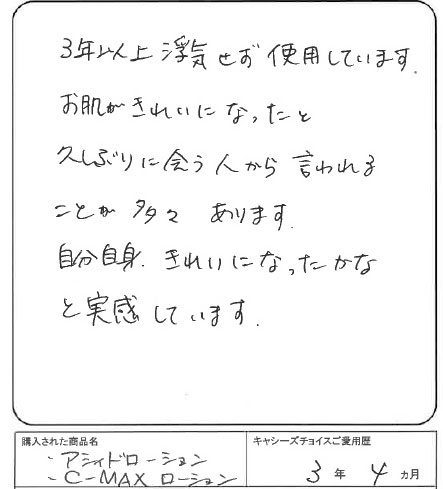 3年以上浮気せず使用しています.
お肌がきれいになったと
久しぶりに会う人から言われる
ことが多々あります.
自分自身.きれいになったかな
と実感しています.
購入された商品名
キャシーズチョイスご愛用歴
・アシィドローション
・C-MAX ローション
3年4ヵ月